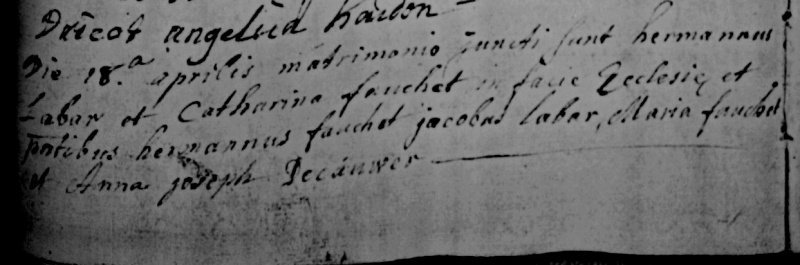 Dricot angelica hardon
Die 18.a aprilis matrimonio juncti sunt hermannus
Labar et Catharina fauchet in facie Ecclesiæ et
pntibus hermannus fauchet jacobus labar, Maria fauchet
et Anna joseph Decauwer